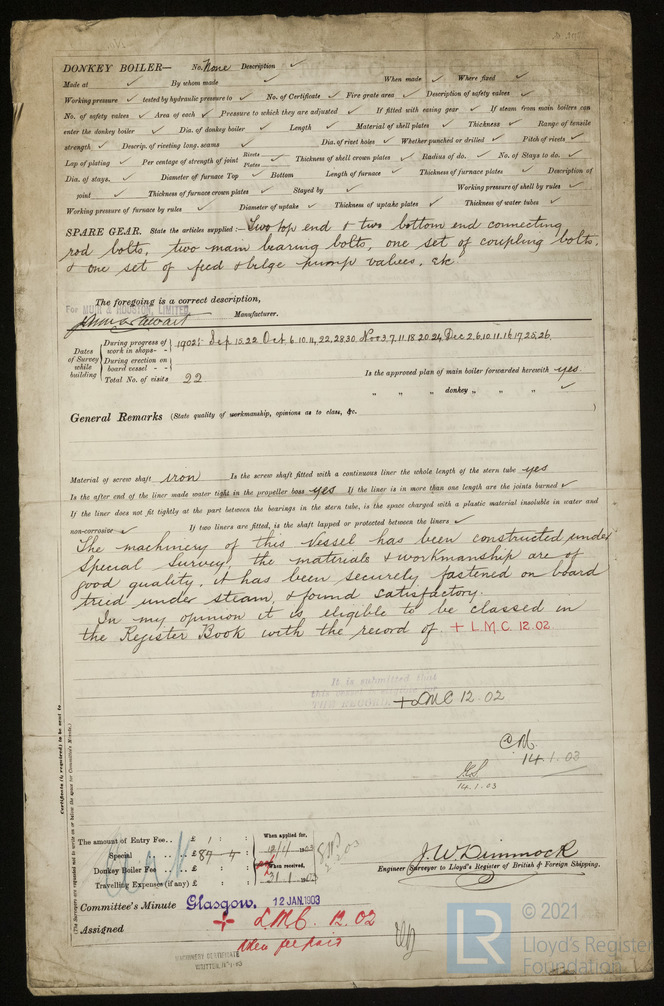 DONKEY BOILER— No. None Description ✓
Made at ✓ By whom made ✓ When made ✓ Where fixed ✓
Working pressure ✓ tested by hydraulic pressure to ✓ No. of Certificate ✓ Fire grate area ✓ Description of safety valves ✓
No. of safety valves ✓ Area of each ✓ Pressure to which they are adjusted ✓ If fitted with easing gear ✓ If steam from main boilers can
enter the donkey boiler ✓ Dia. of donkey boiler ✓ Length ✓ Material of shell plates ✓ Thickness ✓ Range of tensile
strength ✓ Descrip. of riveting long. seams ✓ Dia. of rivet holes ✓ Whether punched or drilled ✓ Pitch of rivets ✓
Lap of plating ✓ Per centage of strength of joint Rivets ✓ Plates ✓ Thickness of shell crown plates ✓ Radius of do. ✓ No. of Stays to do. ✓
Dia. of stays. ✓ Diameter of furnace Top ✓ Bottom Length of furnace ✓ Thickness of furnace plates ✓ Description of
joint ✓ Thickness of furnace crown plates ✓ Stayed by ✓ Working pressure of shell by rules ✓
Working pressure of furnace by rules ✓ Diameter of uptake ✓ Thickness of uptake plates ✓ Thickness of water tubes ✓
SPARE GEAR. State the articles supplied:— Two top end & two bottom end connecting
rod bolts, two main bearing bolts, one set of coupling bolts,
& one set of feed & bilge pump valves, &c
The foregoing is a correct description,
For MUIR & HOUSTON, LIMITED.
Manufacturer.
Dates of Survey while building
During progress of work in shops - - 1902: Sep 15.22 Oct 6.10.14.22.28.30 Nov 3.7.11.18.20.24 Dec 2.6.10.11.16.17.25.26.
During erection on board vessel - -
Total No. of visits 22
Is the approved plan of main boiler forwarded herewith yes.
" " " donkey " " " ✓
General Remarks (State quality of workmanship, opinions as to class, &c. )
Material of screw shaft iron Is the screw shaft fitted with a continuous liner the whole length of the stern tube yes
Is the after end of the liner made water tight in the propeller boss yes If the liner is in more than one length are the joints burned ✓
If the liner does not fit tightly at the part between the bearings in the stern tube, is the space charged with a plastic material insoluble in water and
non-corrosive ✓ If two liners are fitted, is the shaft lapped or protected between the liners ✓
The machinery of this Vessel has been constructed under
Special Survey, the materials & workmanship are of
good quality. it has been securely fastened on board
tried under steam, & found satisfactory.
In my opinion it is eligible to be classed in
the Register Book with the record of. + L.M.C. 12.02
It is submitted that
+ LMC 12.02
14.1.03
14.1.03
Certificate (if required) to be sent to
(The Surveyors are requested not to write on or below the space for Committee's Minute.)
The amount of Entry Fee.. £ 1 : :
Special .. £ 87 : 4 :
Donkey Boiler Fee .. £ : :
Travelling Expenses (if any) £ : :
When applied for,
When received,
31.1.1903
J. W. Dimmock
Engineer Surveyor to Lloyd's Register of British & Foreign Shipping.
Committee's Minute Glasgow. 12 JAN. 1903
Assigned + L.M.C. 12.02
when fee paid
MACHINERY CERTIFICATE
WRITTEN
LR © 2021
Lloyd's Register
Foundation